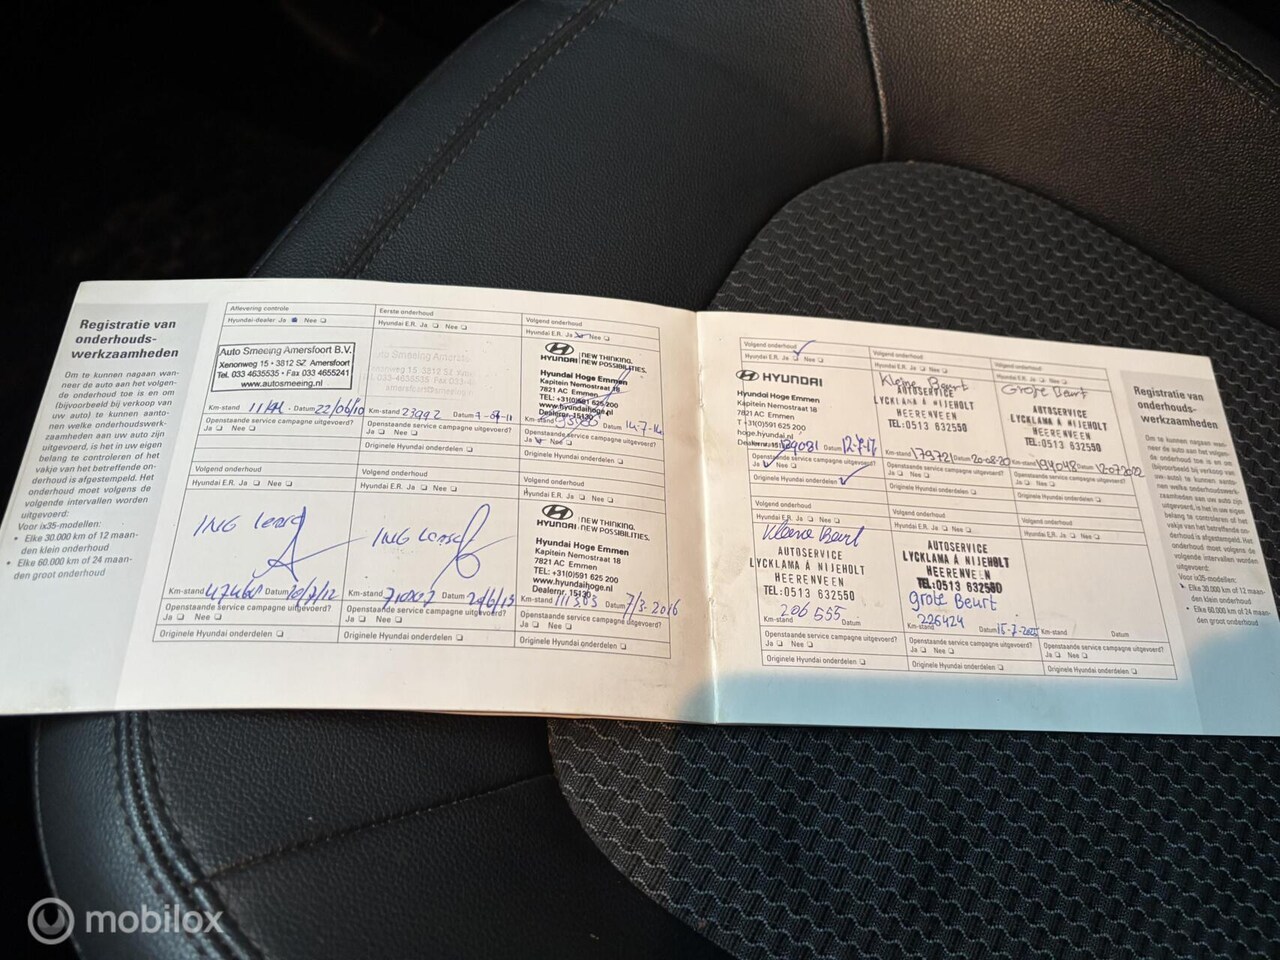 Registratie van
onderhouds-
werkzaamheden
Om te kunnen nagaan wan-
neer de auto aan het volgen-
de onderhoud toe is en om
(bijvoorbeeld bij verkoop van
uw auto) te kunnen aanto-
nen welke onderhoudswerk-
zaamheden aan uw auto zijn
uitgevoerd, is het in uw eigen
belang te controleren of het
vakje van het betreffende on-
derhoud is afgestempeld. Het
onderhoud moet volgens de
volgende intervallen worden
uitgevoerd:
Voor ix35-modellen:
• Elke 30.000 km of 12 maan-
den klein onderhoud
• Elke 60.000 km of 24 maan-
den groot onderhoud
Aflevering controle
Hyundai-dealer Ja Nee
Auto Smeeing Amersfoort B.V.
Xenonweg 15 • 3812 SZ Amersfoort
Tel. 033 4635535 • Fax 033 4655241
www.autosmeeing.nl
Km-stand 11KM Datum 22/06/10
Openstaande service campagne uitgevoerd?
Ja Nee
Eerste onderhoud
Hyundai E.R. Ja Nee
Auto Smeeing Amersfo
Km-stand 23992 Datum
Openstaande service campagne uitgevoerd?
Ja Nee
Originele Hyundai onderdelen
Volgend onderhoud
Hyundai E.R. Ja Nee
HYUNDAI NEW THINKING.
NEW POSSIBILITIES.
Hyundai Hoge Emmen
Kapitein Nemostraat 18
7821 AC Emmen
TEL: +31(0)591 625 200
www.hyundaihoge.nl
Dealernr. 15130
Km-stand Datum 14-7-14
Openstaande service campagne uitgevoerd?
Ja Nee
Originele Hyundai onderdelen
Volgend onderhoud
Hyundai E.R. Ja Nee
ING Lease
Km-stand Datum
Openstaande service campagne uitgevoerd?
Ja Nee
Originele Hyundai onderdelen
Volgend onderhoud
Hyundai E.R. Ja Nee
ING Lease
Km-stand Datum
Openstaande service campagne uitgevoerd?
Ja Nee
Originele Hyundai onderdelen
Volgend onderhoud
Hyundai E.R. Ja Nee
HYUNDAI NEW THINKING.
NEW POSSIBILITIES.
Hyundai Hoge Emmen
Kapitein Nemostraat 18
7821 AC Emmen
TEL: +31(0)591 625 200
www.hyundaihoge.nl
Dealernr. 15130
Km-stand 111303 Datum 7/3-2016
Openstaande service campagne uitgevoerd?
Ja Nee
Originele Hyundai onderdelen
Volgend onderhoud
Hyundai E.R. Ja Nee
HYUNDAI
Hyundai Hoge Emmen
Kapitein Nemostraat 18
7821 AC Emmen
T +31(0)591 625 200
hoge.hyundai.nl
Datum
Openstaande service campagne uitgevoerd?
Ja Nee
Originele Hyundai onderdelen
Volgend onderhoud
Hyundai E.R. Ja Nee
Kleine Beurt
AUTOSERVICE
LYCKLAMA À NIJEHOLT
HEERENVEEN
TEL:0513 632550
Km-stand 179721 Datum 20-08-20
Openstaande service campagne uitgevoerd?
Ja Nee
Originele Hyundai onderdelen
Volgend onderhoud
Hyundai E.R. Ja Nee
Grote Beurt
AUTOSERVICE
LYCKLAMA À NIJEHOLT
HEERENVEEN
TEL:0513 632550
Km-stand 194048 Datum 12-07-2022
Openstaande service campagne uitgevoerd?
Ja Nee
Originele Hyundai onderdelen
Volgend onderhoud
Hyundai E.R. Ja Nee
Kleine Beurt
AUTOSERVICE
LYCKLAMA À NIJEHOLT
HEERENVEEN
TEL:0513 632550
206 555
Km-stand Datum
Openstaande service campagne uitgevoerd?
Ja Nee
Originele Hyundai onderdelen
Volgend onderhoud
Hyundai E.R. Ja Nee
AUTOSERVICE
LYCKLAMA À NIJEHOLT
HEERENVEEN
TEL:0513 632550
grote Beurt
226424
Km-stand Datum
Openstaande service campagne uitgevoerd?
Ja Nee
Originele Hyundai onderdelen
Volgend onderhoud
Hyundai E.R. Ja Nee
Km-stand Datum
Openstaande service campagne uitgevoerd?
Ja Nee
Originele Hyundai onderdelen
Registratie van
onderhouds-
werkzaamheden
Om te kunnen nagaan wan-
neer de auto aan het volgen-
de onderhoud toe is en om
(bijvoorbeeld bij verkoop van
uw auto) te kunnen aanto-
nen welke onderhoudswerk-
zaamheden aan uw auto zijn
uitgevoerd, is het in uw eigen
belang te controleren of het
vakje van het betreffende on-
derhoud is afgestempeld. Het
onderhoud moet volgens de
volgende intervallen worden
uitgevoerd:
Voor ix35-modellen:
• Elke 30.000 km of 12 maan-
den klein onderhoud
• Elke 60.000 km of 24 maan-
den groot onderhoud
mobilox